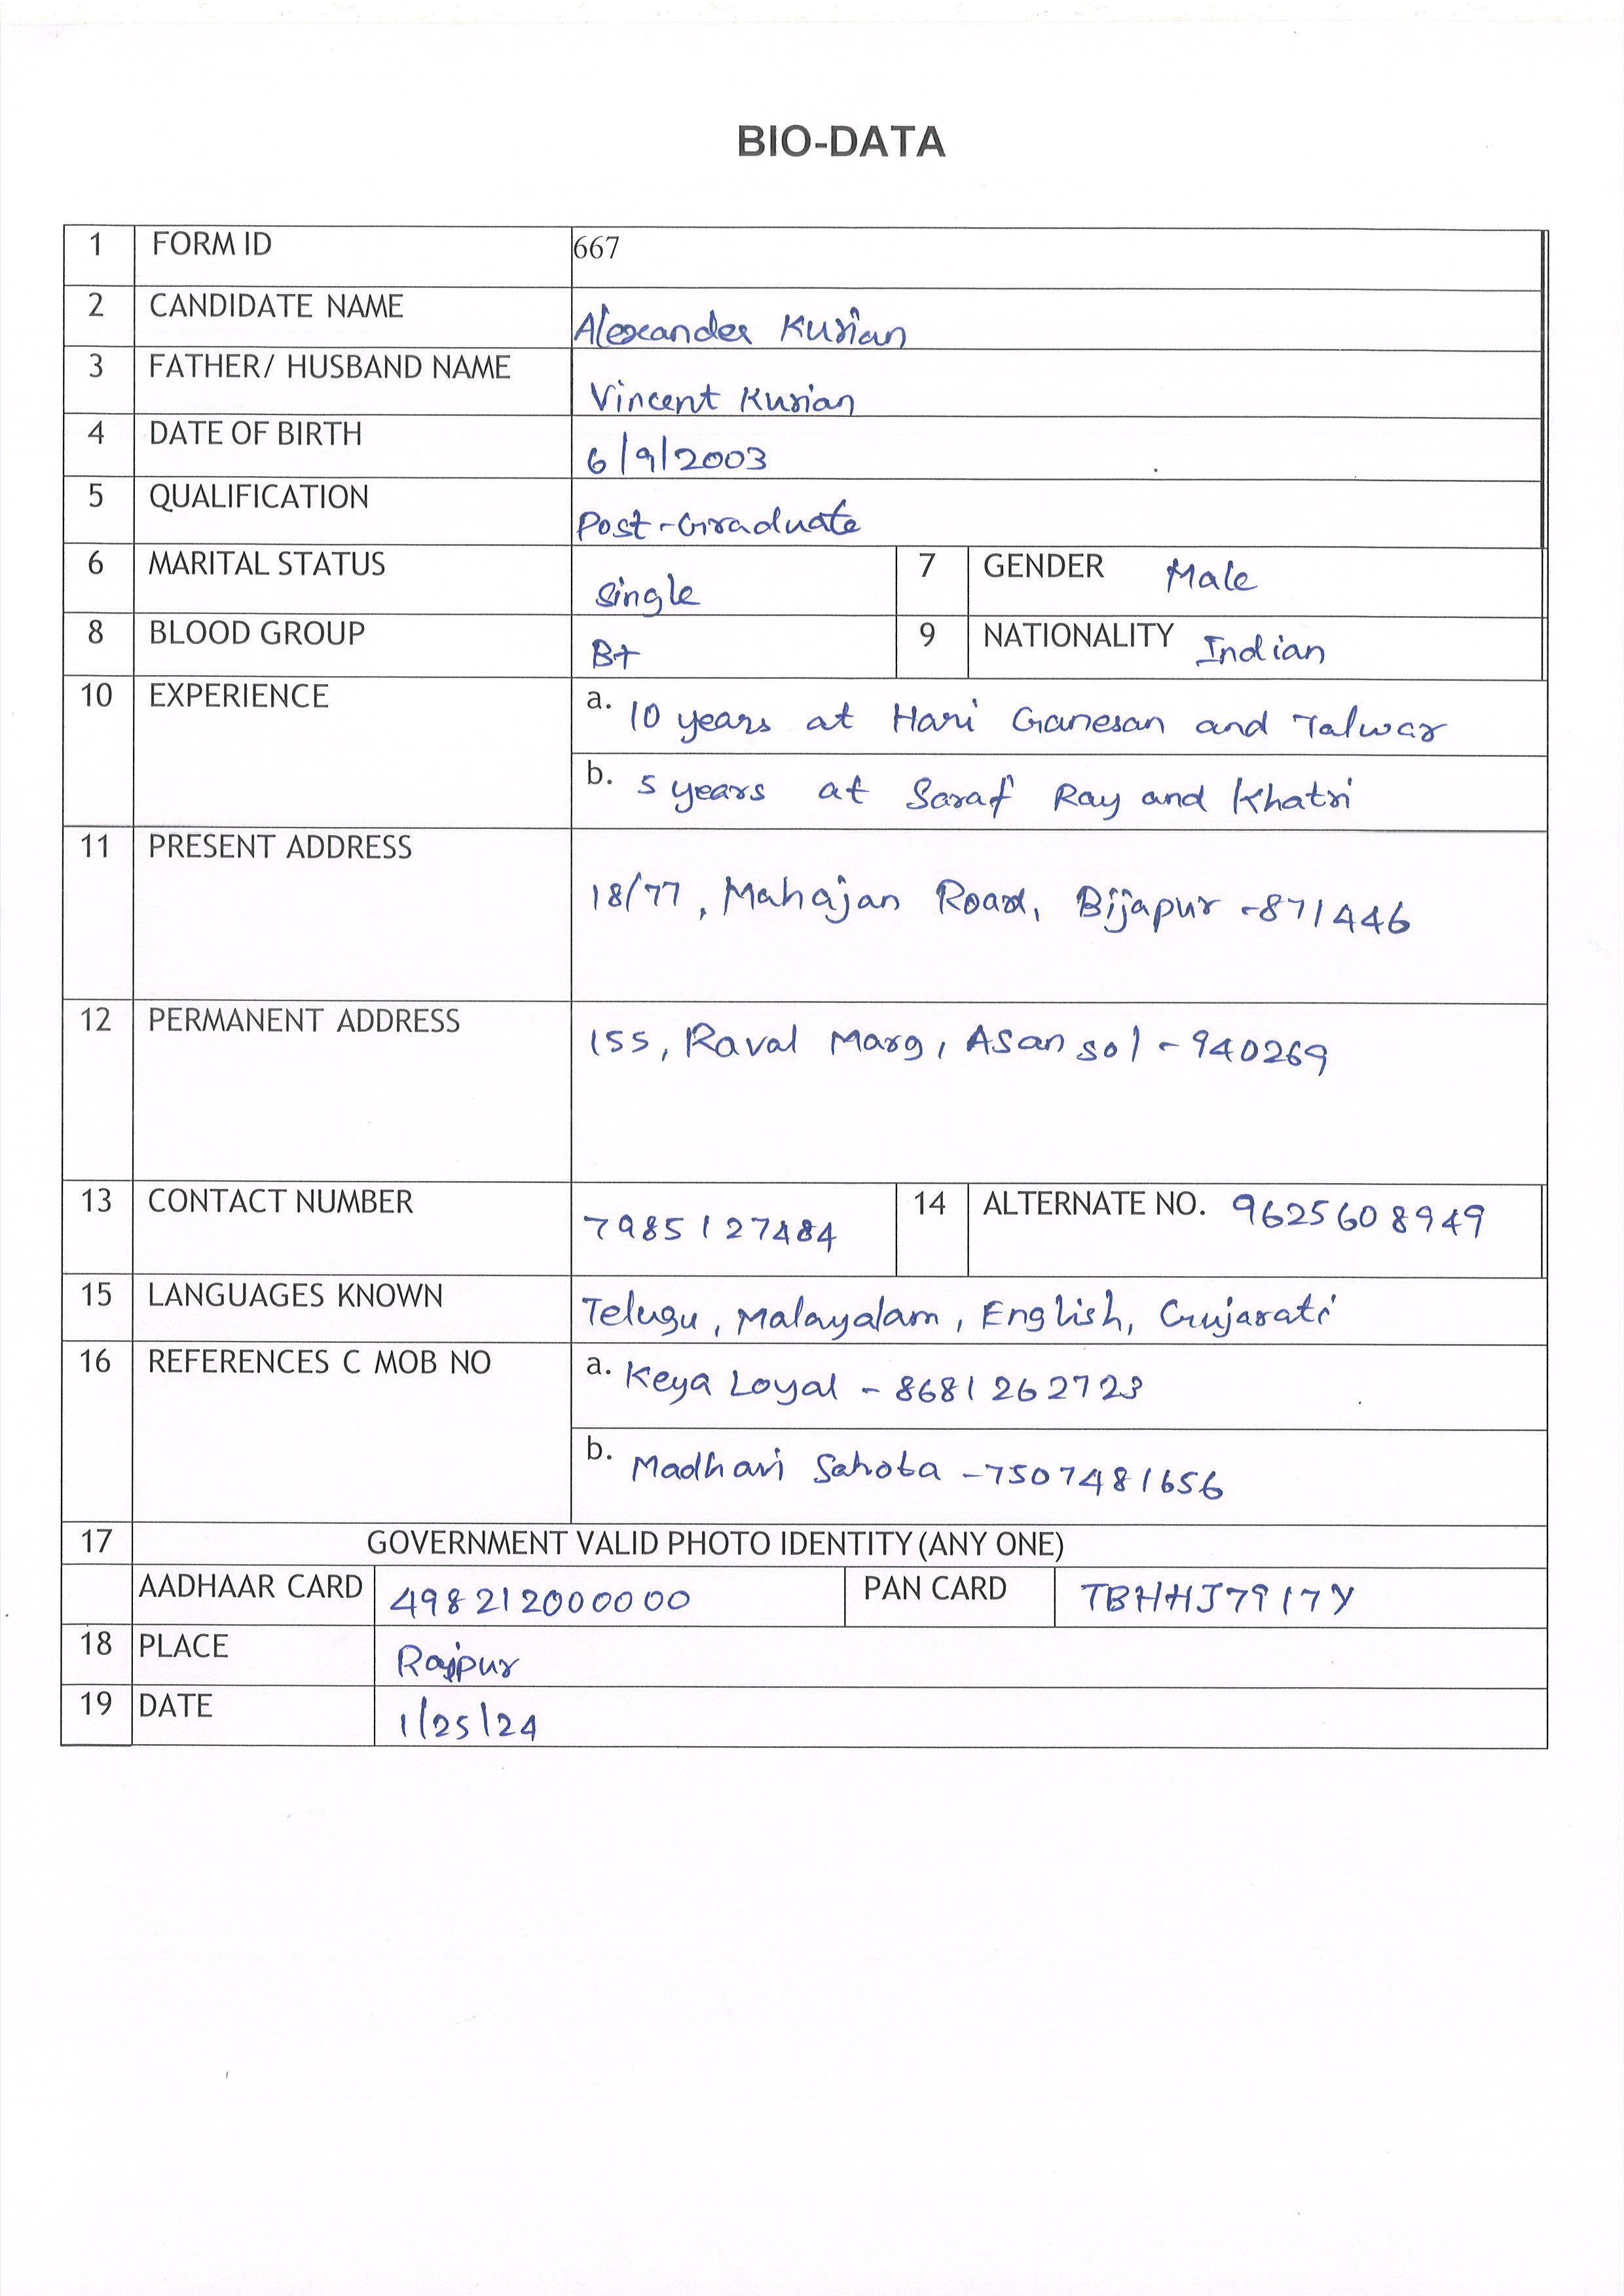 BIO-DATA
1 FORM ID 667
2 CANDIDATE NAME Alexander Kurian
3 FATHER/ HUSBAND NAME Vincent Kurian
4 DATE OF BIRTH 6/9/2003
5 QUALIFICATION Post-Graduate
6 MARITAL STATUS Single 7 GENDER Male
8 BLOOD GROUP B+ 9 NATIONALITY Indian
10 EXPERIENCE a. 10 years at Hari Ganesan and Talwar
b. 5 years at Saraf Ray and Khatri
11 PRESENT ADDRESS 18/77, Mahajan Road, Bijapur -871446
12 PERMANENT ADDRESS 155, Raval Marg, Asansol - 940269
13 CONTACT NUMBER 7985127484 14 ALTERNATE NO. 9625608949
15 LANGUAGES KNOWN Telugu, Malayalam, English, Gujarati
16 REFERENCES C MOB NO a. Keya Loyal - 8681262723
b. Madhavi Sahota -7507481656
17 GOVERNMENT VALID PHOTO IDENTITY (ANY ONE)
AADHAAR CARD 498212000000 PAN CARD TBHHJ7917Y
18 PLACE Rajpur
19 DATE 1/25/24